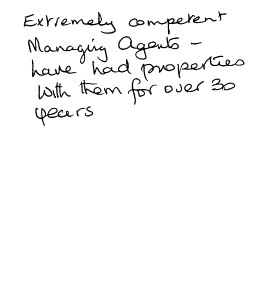 Extremely competent
Managing Agents -
have had properties
with them for over 30
years